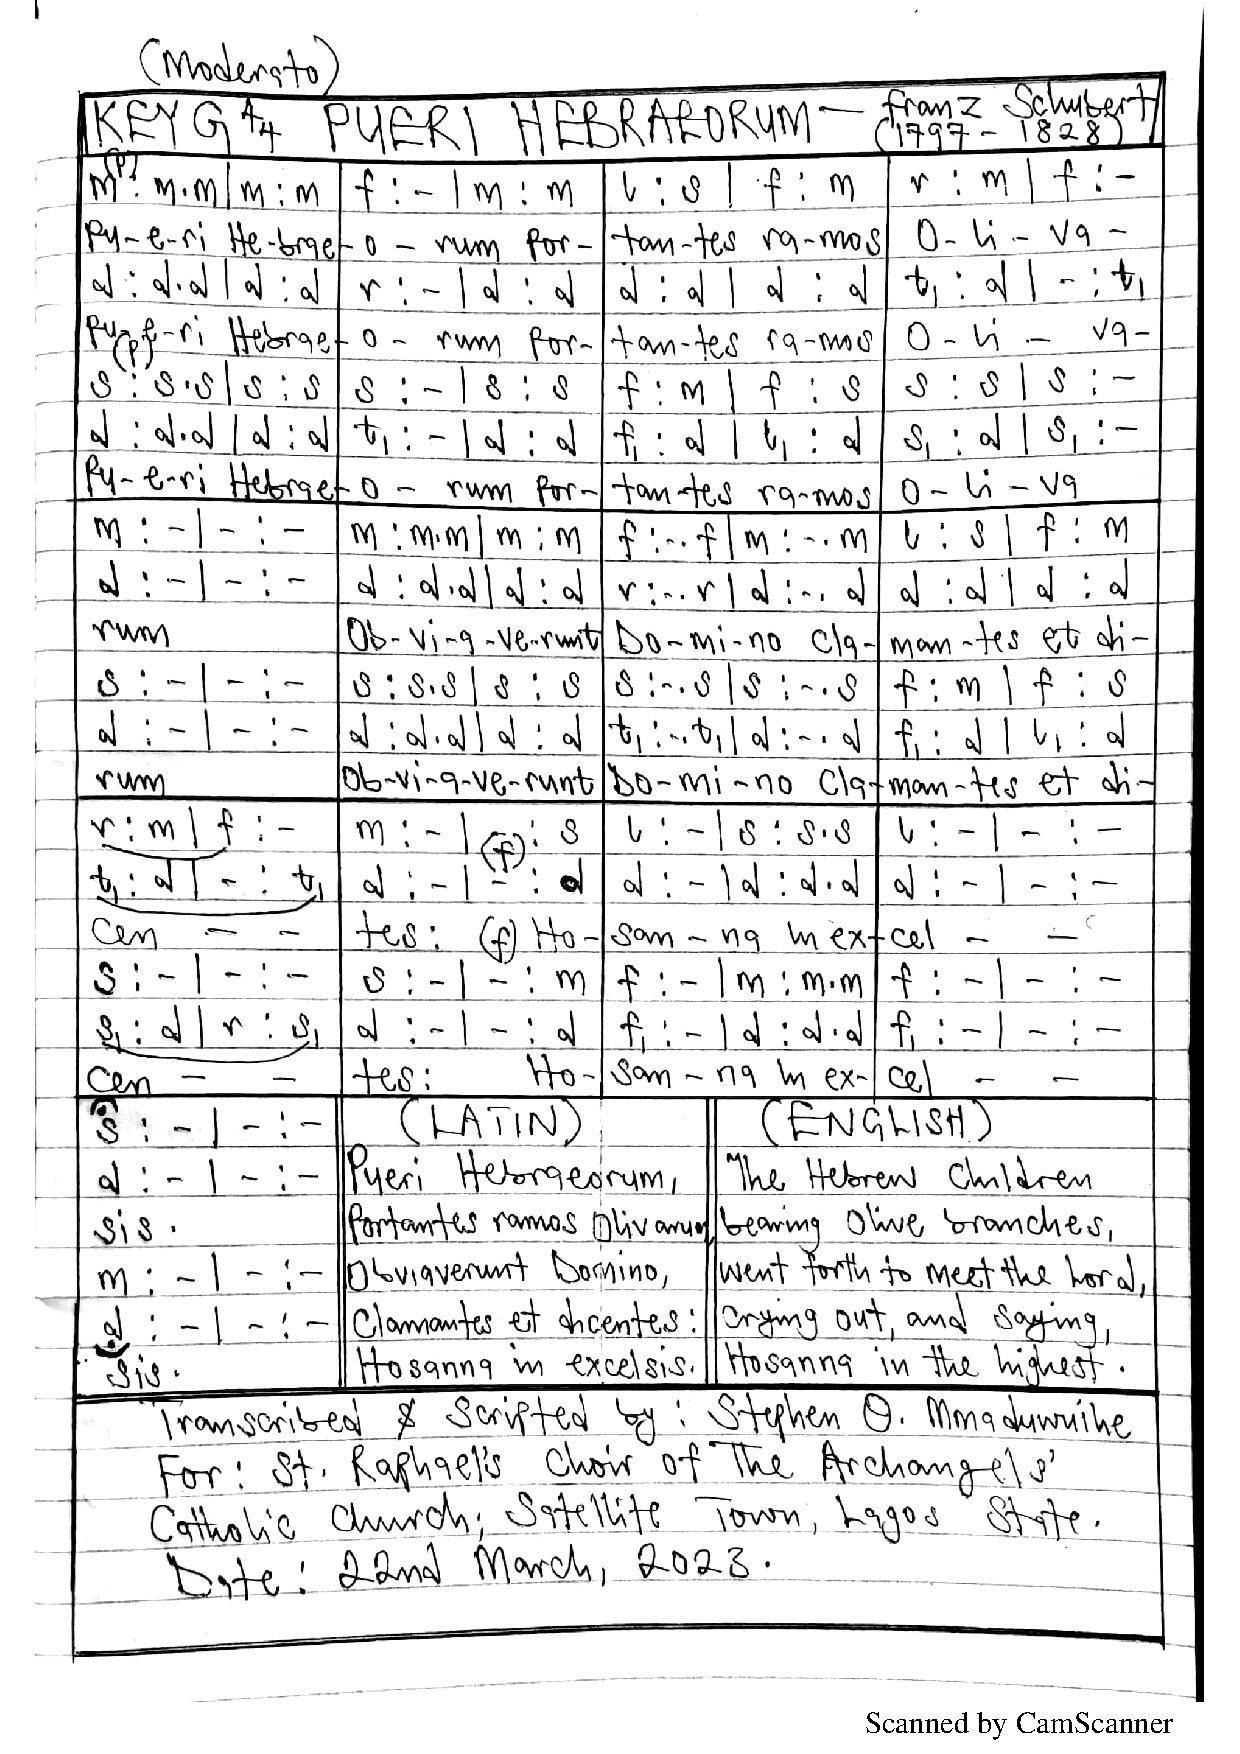 (Moderato)
KEY G 4/4 PUERI HEBRAEORUM — Franz Schubert
(1797 - 1828)
(p)
m : m.m | m : m | f : - | m : m | l : s | f : m | r : m | f : -
Pu-e-ri He-brae-o-rum Por-tan-tes ra-mos O-li-va-
d : d.d | d : d | r : - | d : d | d : d | d : d | t₁ : d | - : t₁
Pu-e-ri Hebrae-o-rum Por-tan-tes ra-mos O-li-va-
(p)
s : s.s | s : s | s : - | s : s | f : m | f : s | s : s | s : -
d : d.d | d : d | t₁ : - | d : d | f₁ : d | l₁ : d | s₁ : d | s₁ : -
Pu-e-ri Hebrae-o-rum Por-tan-tes ra-mos O-li-va
m : - | - : - | m : m.m | m : m | f : -.f | m : -.m | l : s | f : m
d : - | - : - | d : d.d | d : d | r : -.r | d : -.d | d : d | d : d
rum Ob-vi-a-ve-runt Do-mi-no Cla-man-tes et di-
s : - | - : - | s : s.s | s : s | s : -.s | s : -.s | f : m | f : s
d : - | - : - | d : d.d | d : d | t₁ : -.t₁ | d : -.d | f₁ : d | l₁ : d
rum Ob-vi-a-ve-runt Do-mi-no Cla-man-tes et di-
r : m | f : - | m : - | - : s | l : - | s : s.s | l : - | - : -
(f)
t₁ : d | - : t₁ | d : - | - : d | d : - | d : d.d | d : - | - : -
cen - - tes: (f) Ho-san-na in ex-cel - -
s : - | - : - | s : - | - : m | f : - | m : m.m | f : - | - : -
s₁ : d | r : s₁ | d : - | - : d | f₁ : - | d : d.d | f₁ : - | - : -
cen - - tes: Ho-san-na in ex-cel - -
s : - | - : -
d : - | - : -
sis.
m : - | - : -
d : - | - : -
sis.
(LATIN)
Pueri Hebraeorum,
Portantes ramos Olivarum,
Obviaverunt Domino,
Clamantes et dicentes:
Hosanna in excelsis.
(ENGLISH)
The Hebrew Children
bearing Olive branches,
went forth to meet the Lord,
crying out, and saying,
Hosanna in the highest.
Transcribed & Scripted by: Stephen O. Mmaduwuihe
For: St. Raphael's Choir of The Archangels'
Catholic Church, Satellite Town, Lagos State.
Date: 22nd March, 2023.
Scanned by CamScanner